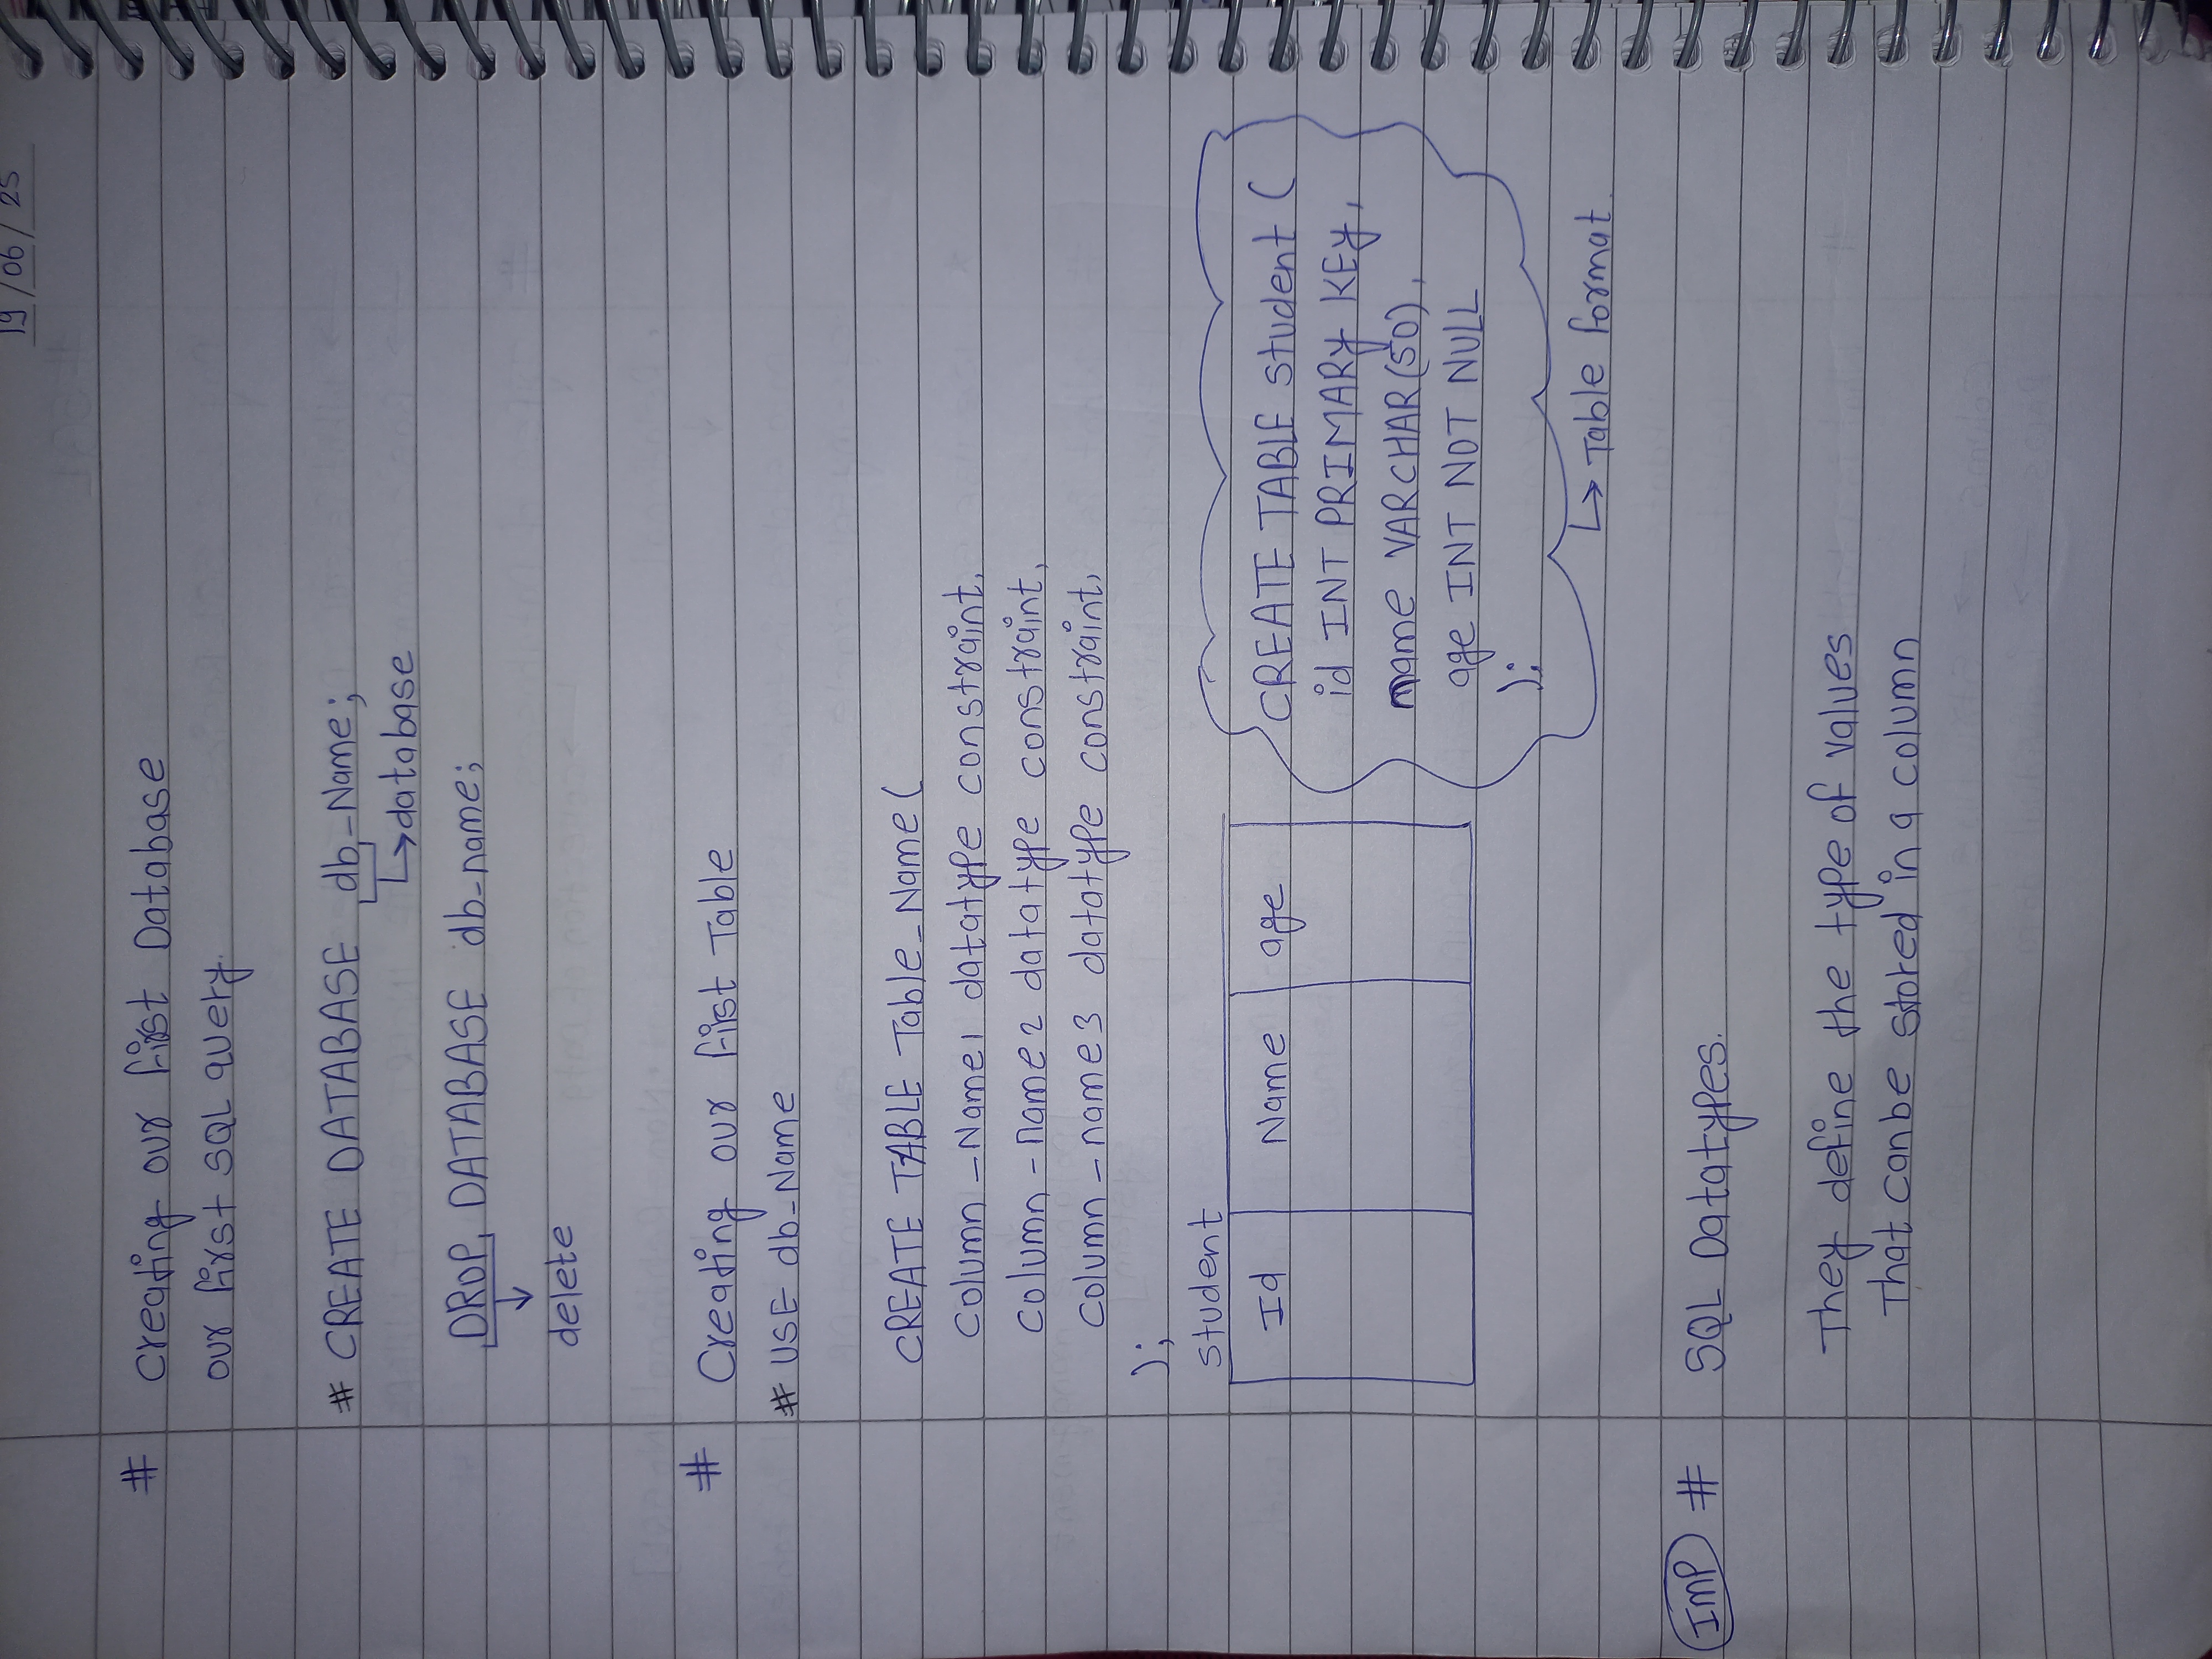 19/06/25
# Creating our first Database
our first SQL query.
# CREATE DATABASE db_Name;
↳ database
DROP DATABASE db_name;
↓
delete
# Creating our first Table
# USE db_Name
CREATE TABLE Table_Name (
Column_Name1 datatype constraint,
Column_name2 datatype constraint,
Column_name3 datatype constraint,
);
student
Id Name age
CREATE TABLE student (
id INT PRIMARY KEY,
name VARCHAR(50),
age INT NOT NULL
);
↳ Table format.
IMP # SQL Datatypes.
They define the type of values
That can be stored in a column